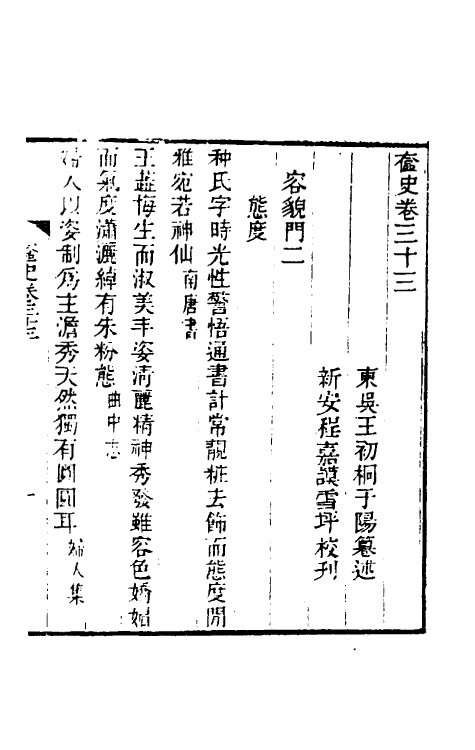 奩史卷三十三
東吳王初桐于陽纂述
新安程嘉謨雪坪校刊
容貌門二
態度
种氏字時光性警悟通書計常靚粧去飾而態度閒
雅宛若神仙 南唐書
王賽梅生而淑美丰姿淸麗精神秀發雖容色嬌媚
而氣度瀟灑綽有朱粉態 曲中志
婦人以姿制爲主澹秀天然獨有圓圓耳 婦人集
奩史卷三十三
一